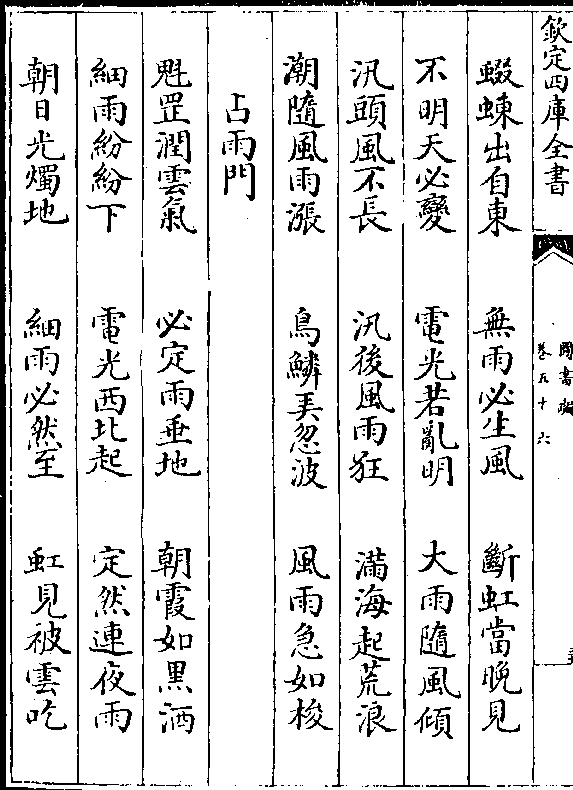 欽定四庫全書
圖書編
卷五十六
蝃蝀出自東 無雨必生風 斷虹當晚見
不明天必變 電光若亂明 大雨隨風傾
汛頭風不長 汛後風雨狂 滿海起荒浪
潮隨風雨漲 鳥鱗弄忽波 風雨急如梭
占雨門
魁罡潤雲氣 必定雨垂地 朝霞如黑洒
細雨紛紛下 電光西北起 定然連夜雨
朝日光燭地 細雨必然至 虹見被雲吃